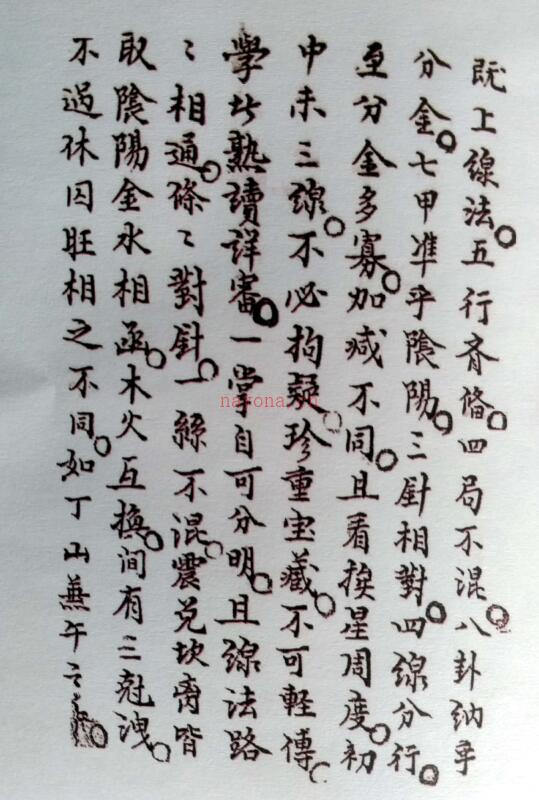 既上線法。五行齊俻四局不混。八卦納乎
分金。七甲準乎陰陽。三針相對。四線分行。
至分金多寡。加减不同。且看挨星周度。初
中未三線。不必拘疑。珍重宝藏。不可軽傳。
學此熟讀詳審。一掌自可分明。且線法路
〻相通。條〻對針。一絲不混。震兑坎离皆
取陰陽金水相函。木火互換。间有三尅洩。
不过休囚旺相之不同。如丁山兼午